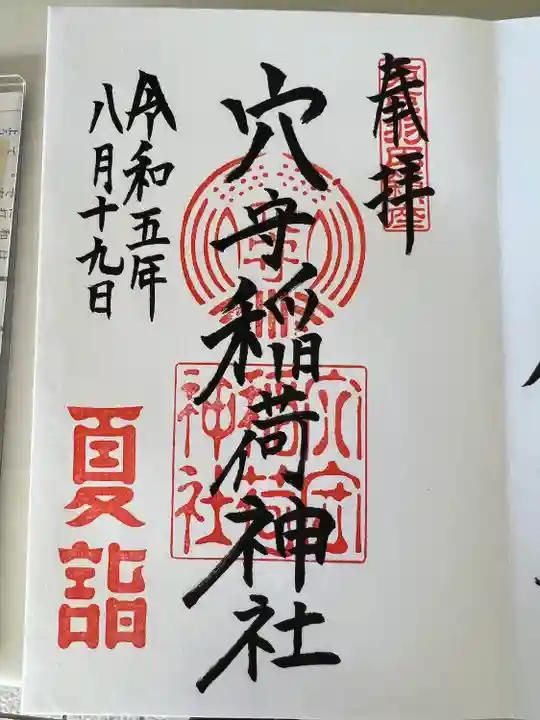 奉拝
東京羽田鎮座
穴守稲荷神社
穴守稲荷神社
令和五年
八月十九日
夏詣